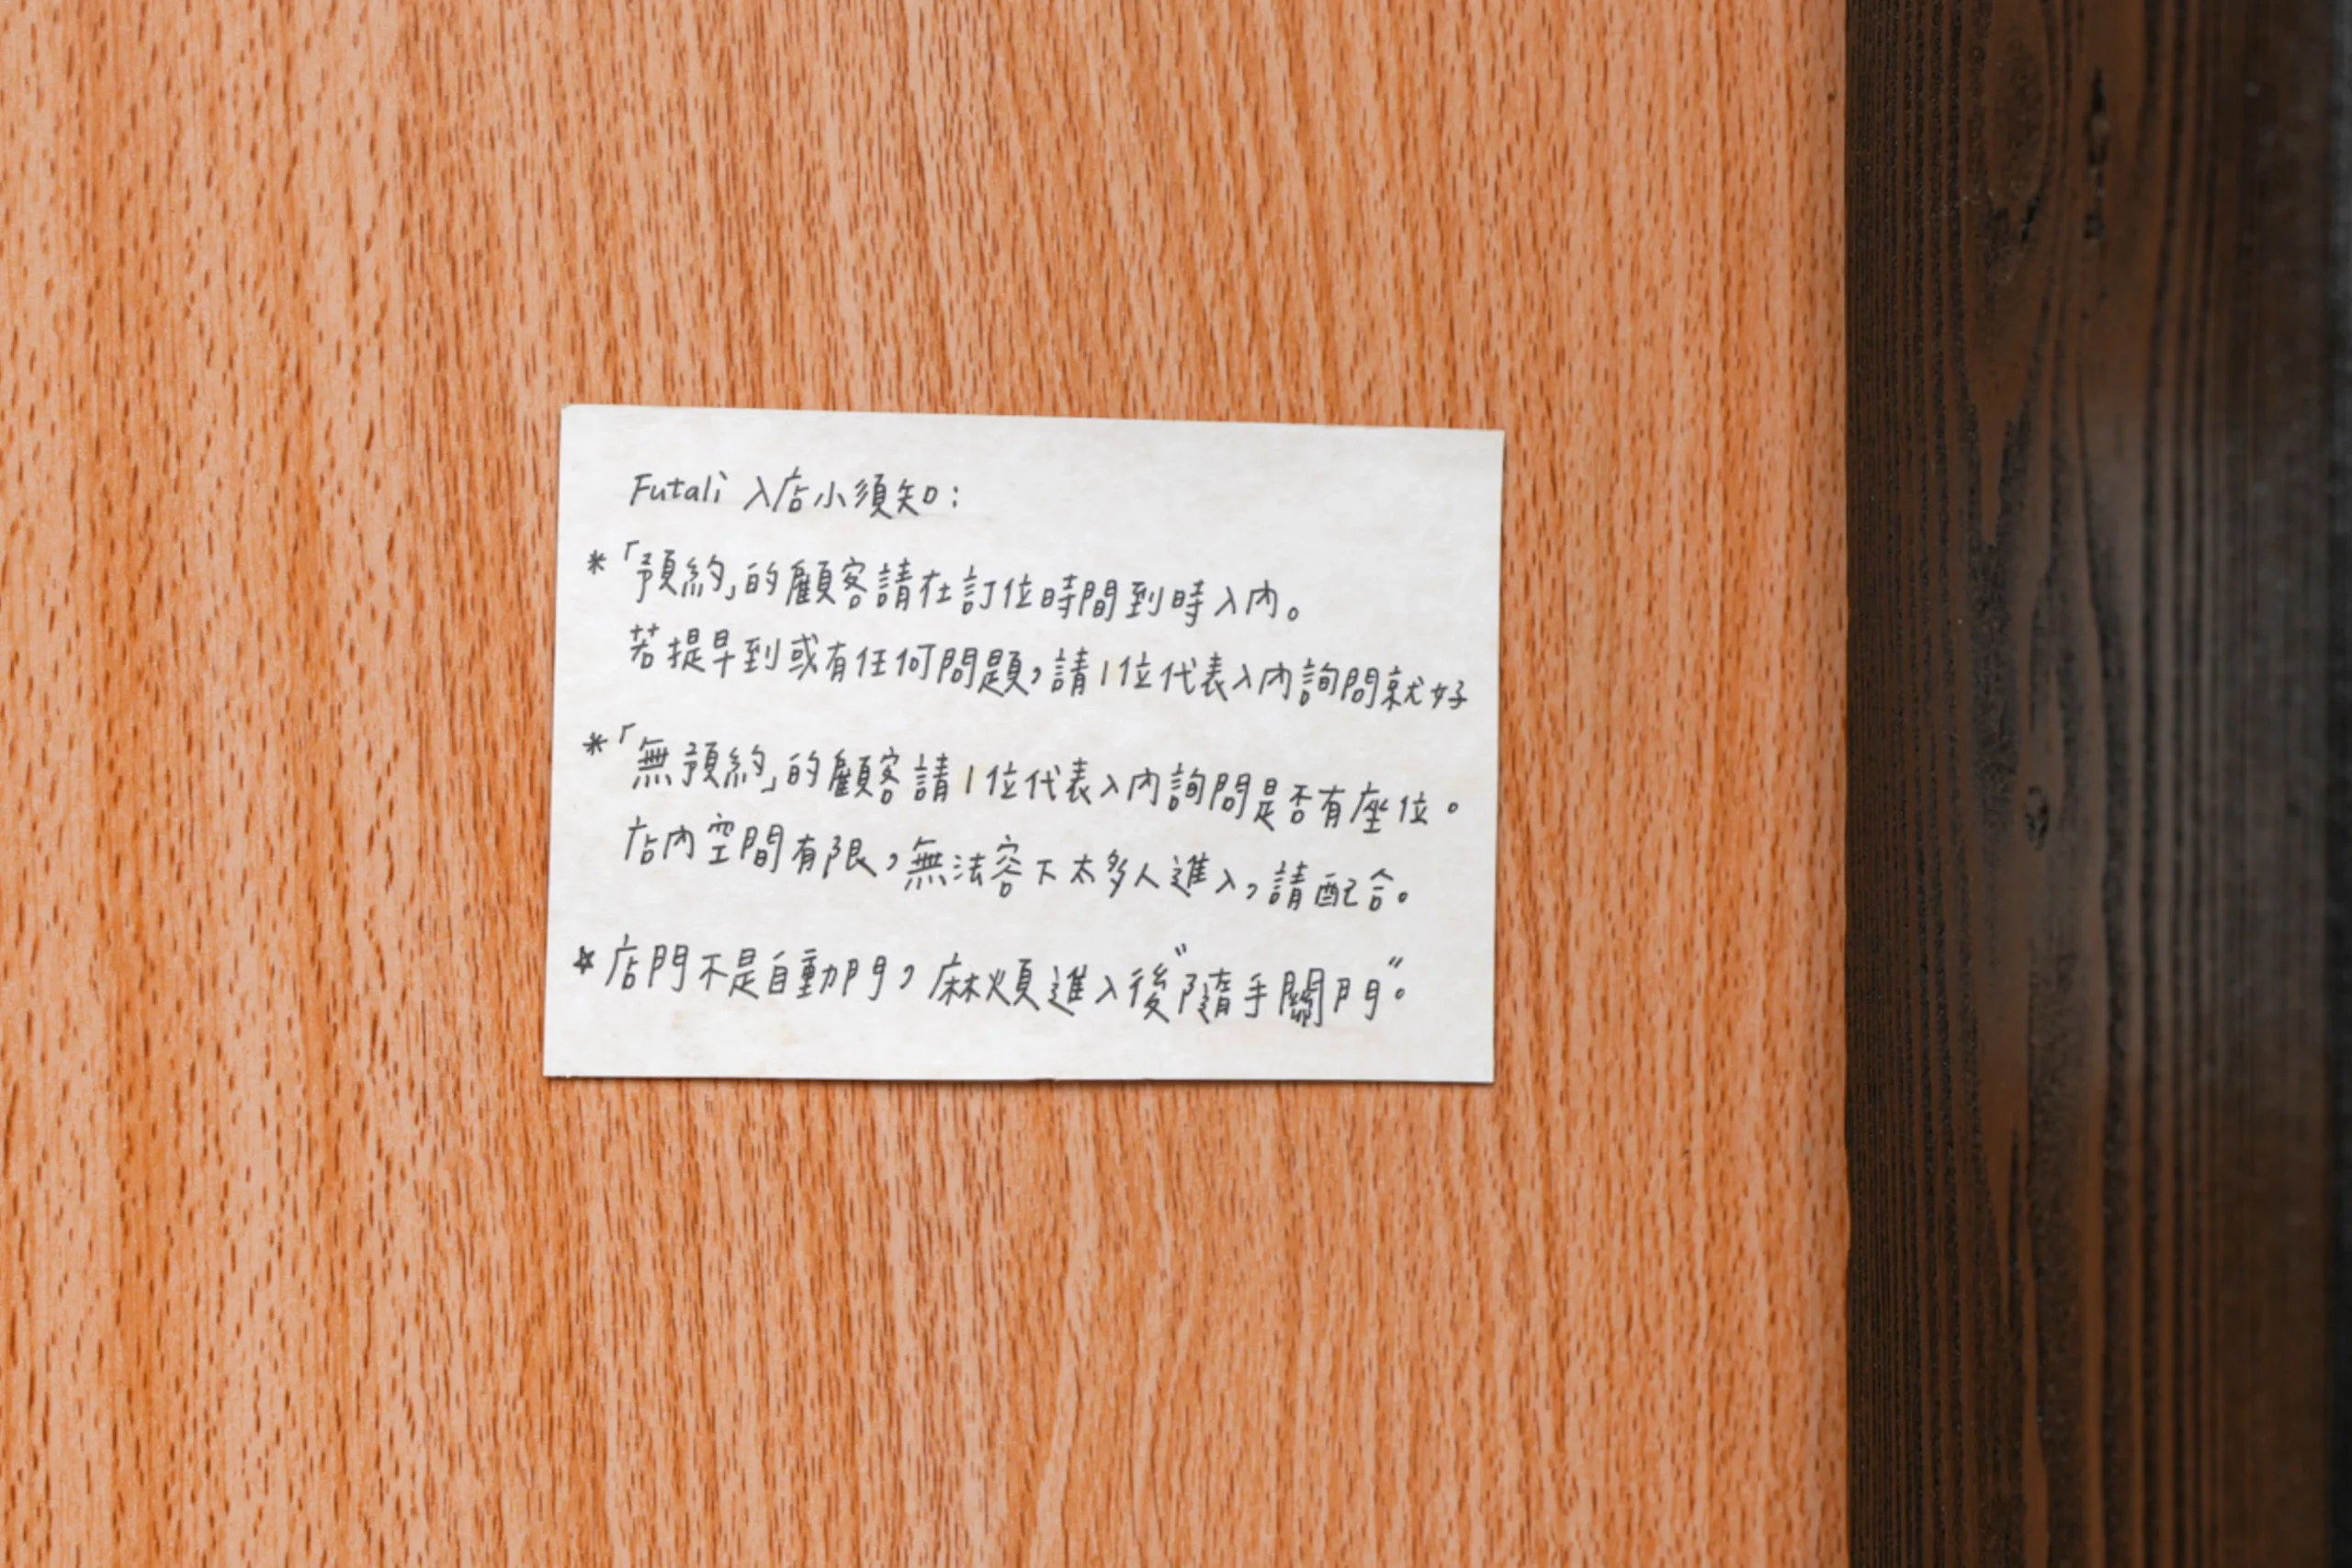 Futali 入店小須知:
*「預約」的顧客請在訂位時間到時入內。
若提早到或有任何問題,請1位代表入內詢問就好
*「無預約」的顧客請1位代表入內詢問是否有座位。
店內空間有限,無法容下太多人進入,請配合。
☆店門不是自動門,麻煩進入後"隨手關門"。